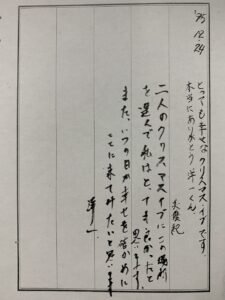 '75 12.24
とっても幸せなクリスマス・イブです
本当にありがとう 洋一くん
二人のクリスマスイブにこの場所
を選んで私はとっても良かったと
思います。
また、いつの日か幸せを確かめに
ここに来てみたいと思います
洋一